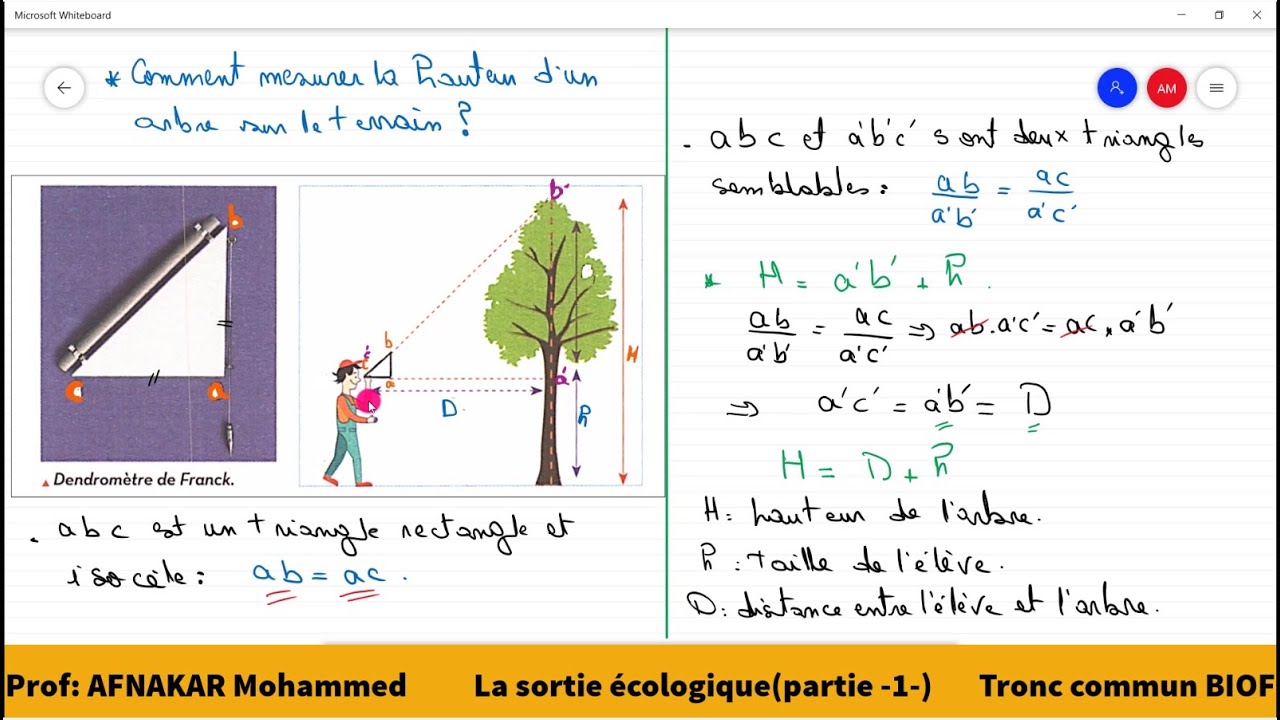 Microsoft Whiteboard
* Comment mesurer la hauteur d'un
arbre sur le terrain ?
b
c
a
▲ Dendromètre de Franck.
b'
b
c'
c
a
a'
D
h
H
. abc est un triangle rectangle et
isocèle : ab = ac .
AM
. abc et a'b'c' sont deux triangles
semblables : ab/a'b' = ac/a'c'
* H = a'b' + h .
ab/a'b' = ac/a'c' ⇒ ab.a'c' = ac.a'b'
⇒ a'c' = a'b' = D
H = D + h
H : hauteur de l'arbre.
h : taille de l'élève.
D : distance entre l'élève et l'arbre.
Prof: AFNAKAR Mohammed La sortie écologique(partie -1-) Tronc commun BIOF